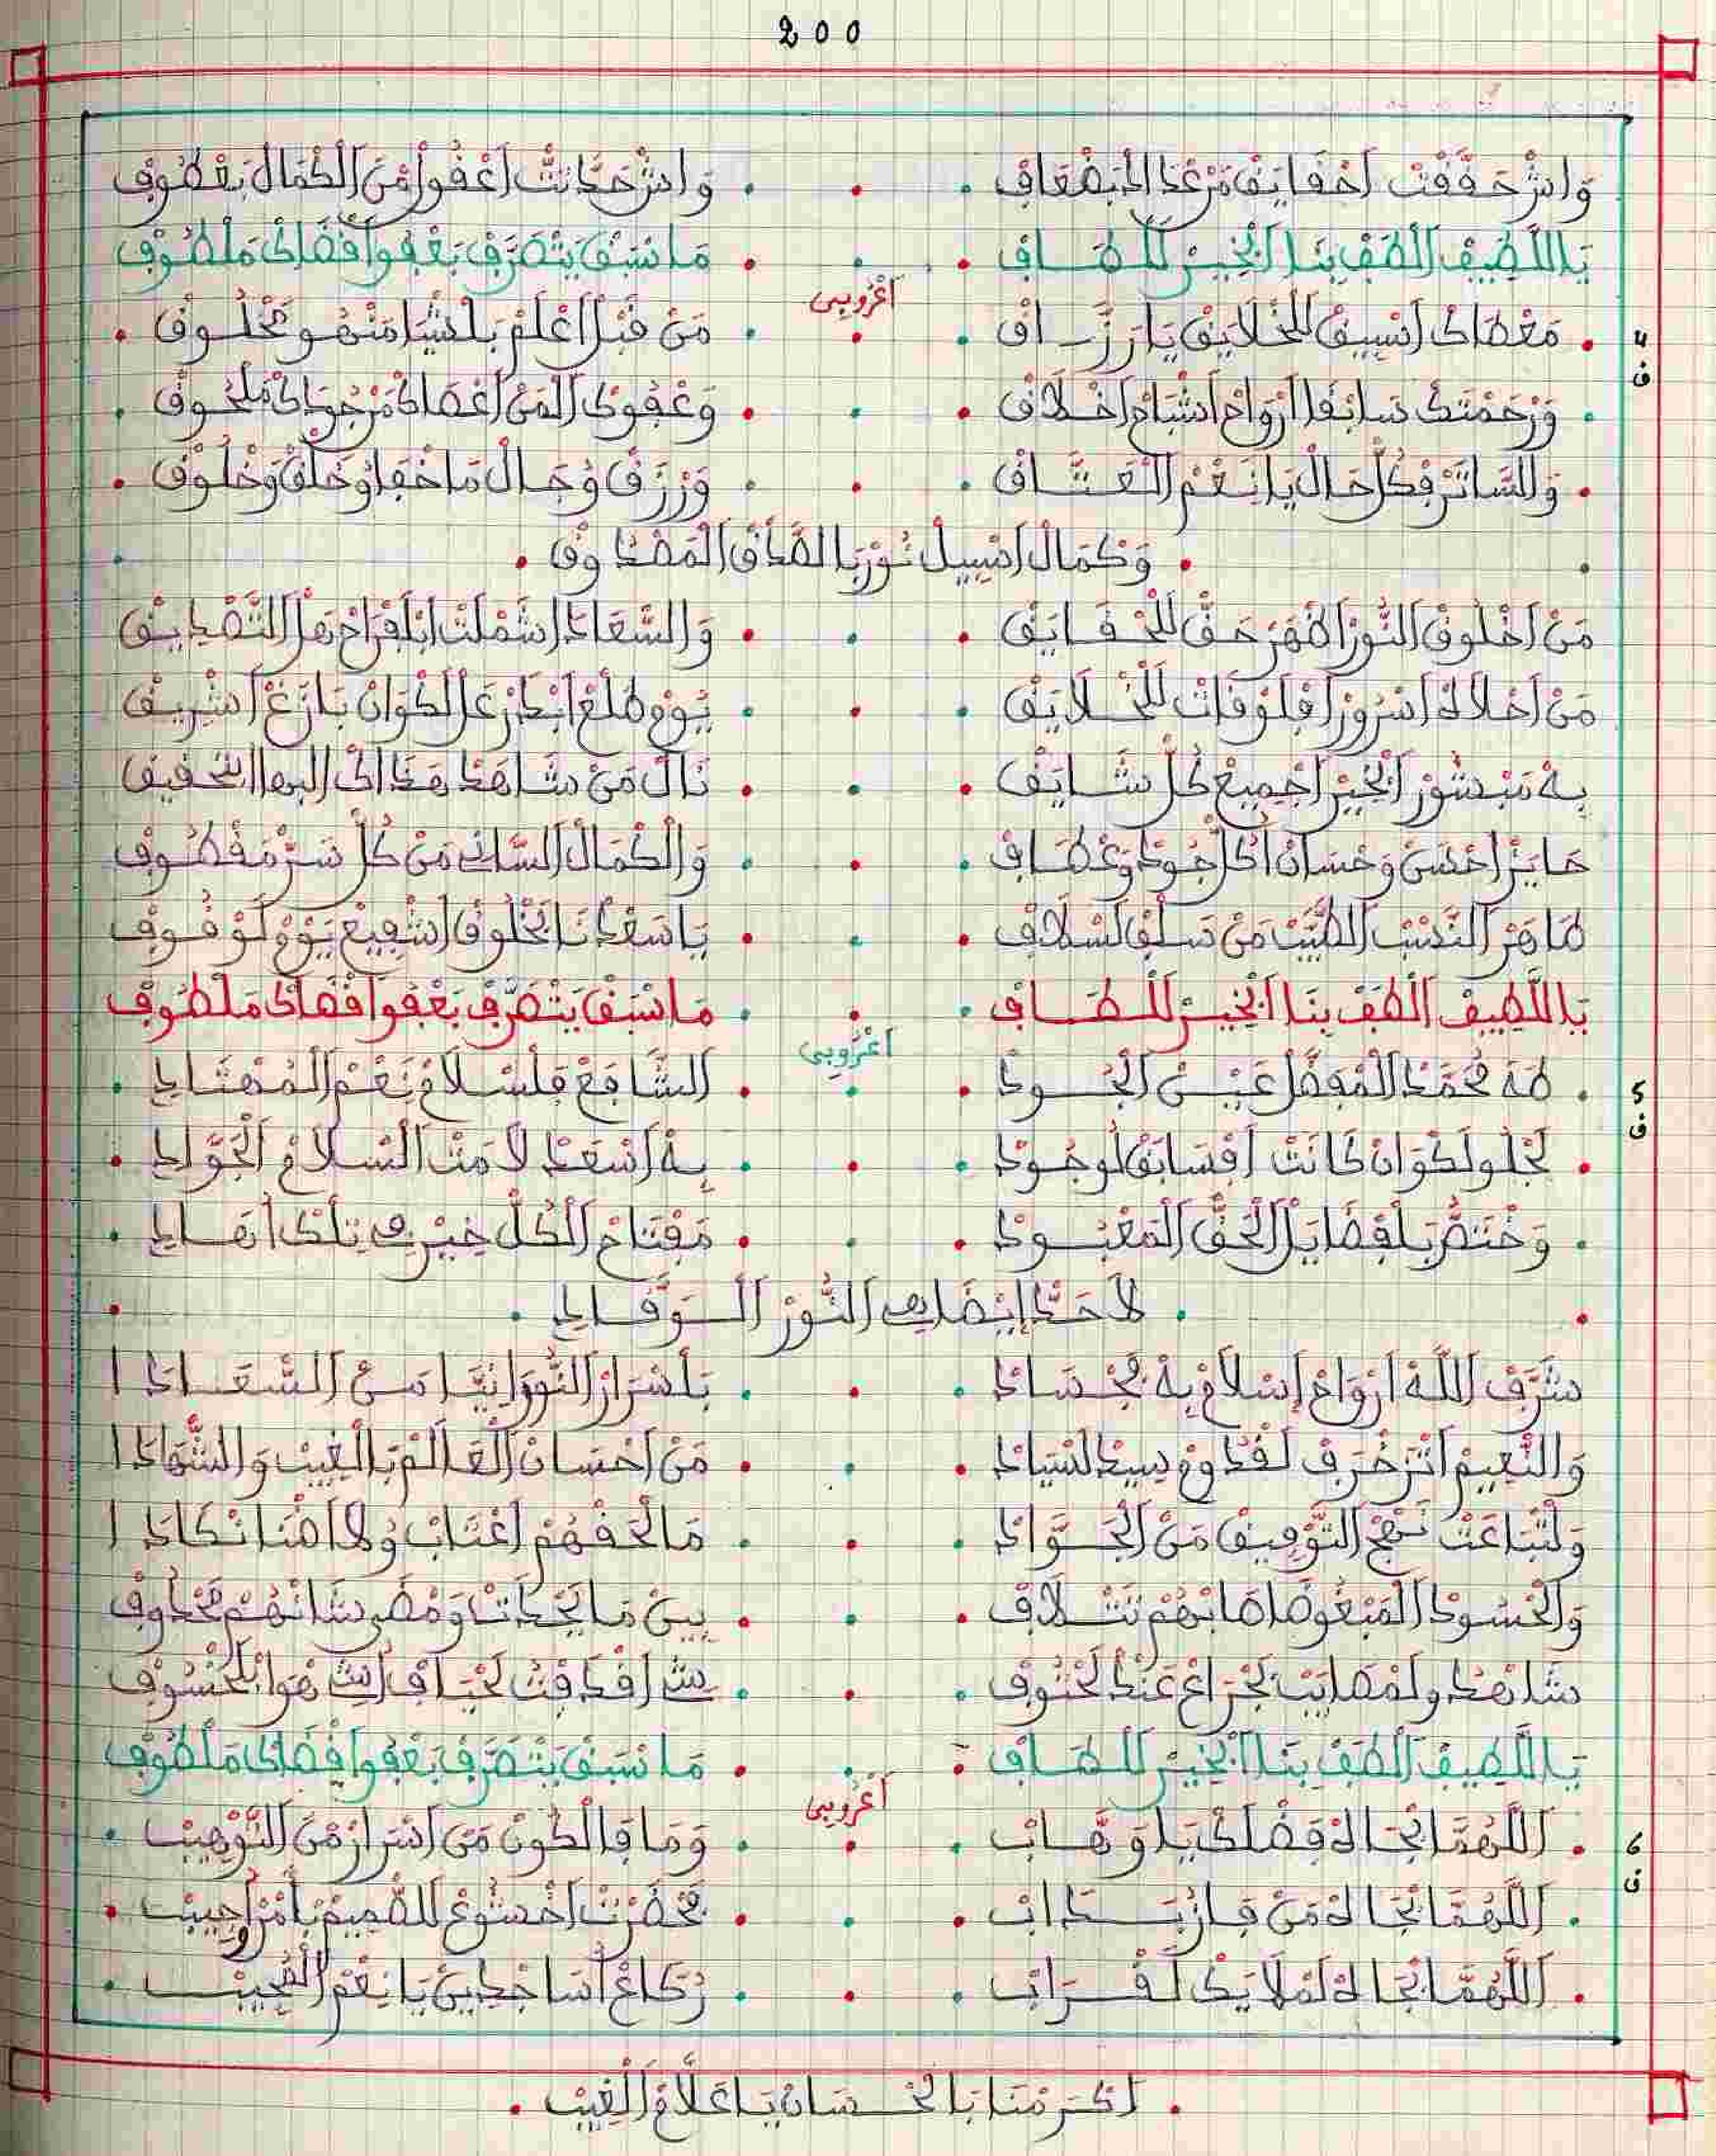 200
وَاشْ حَقَّقْتْ احْقَايَقْ مَنْ غْدَا ابْضْعَافْ . . . وَاشْ حَدَّا نْتَ اعْفُو مْنَ الْكْمَالْ بَعْطُوفْ
يَا اللَّطِيفْ الْطَفْ بِنَا ابْخِيرْ لَلْطَافْ . . . مَا سْبَقْ يَتْصَرَّفْ بَعْفُو اقْضَاكْ مَلْطُوفْ
اعْرُوبِي
4 ف . مَعْطَاكْ اسْبِيقْ لَلْخْلَايَقْ يَا رَزَّاقْ . . . مَنْ قْبَلْ اعْلَمْ بَلشْيَا مَنْهُو مَخْلُوقْ .
. وَرْحَمْتَكْ سَابْقَا ارْوَاحْ اشْبَاحْ اخْلَاقْ . . . وَعْفُوكْ الْمَنْ اعْصَاكْ مَنْ جُودَاكْ مَلْحُوقْ .
. وَالسَّاتَرْ فْكُلّ حَالْ يَا نَعْمَ الْعَتَّاقْ . . . وَرْزَقْ وُجَالْ مَا خْفَاوْ خَلْقْ وَخْلُوقْ .
. وَكْمَالْ اسْبِيلْ نُورْ بَا الصَّادَقْ الْمَصْدُوقْ .
مَنْ اخْلُوقْ النُّورْ اظْهَرْ حَقّ لَلْحْقَايَقْ . . . وَالسَّعَادَ اشَمْلَتْ ابْلَفْرَاحْ هَلْ التَّصْدِيقْ
مَنْ اجْلَالُهْ اسْرُورْ افْلَوْقَاتْ لَلْخْلَايَقْ . . . يُومْ طْلَعْ ابْدَرْ عَلْ الَكْوَانْ بَازَغْ اشْرِيقْ
بِهْ مَبْشُورْ الْخِيرْ اجْمِيعْ كُلْ شَايَقْ . . . نَالْ مَنْ شَاهَدْ هَذَاكْ البها التحقيق
حَايَزْ احْسَنْ وَحْسَانْ اكُلّ جُودْ وَعْطَافْ . . . وَالْكْمَالْ السَّانِي مَنْ كُلْ سَرّ مَقْطُوفْ
طَاهَرْ النَّسَبْ الطَّيَّبْ مَنْ سَلْفْ لَسْلَافْ . . . يَا سَعْدْنَا بَخْلُوقْ اشْفِيعْ يَوْمْ لَوْقُوفْ
يَا اللَّطِيفْ الْطَفْ بِنَا ابْخِيرْ لَلْطَافْ . . . مَا سْبَقْ يَتْصَرَّفْ بَعْفُو اقْضَاكْ مَلْطُوفْ
اعْرُوبِي
5 ف . طَهَ مُحَمَّدْ الْمْفَضَّلْ عَيْنْ الْجُودْ . . . الشَّافَعْ فَلسْلَامْ نَعْمْ الْمُهْتَادِ .
. لَجْلُو لَكْوَانْ كَانَتْ افْسَابَقْ لَوْجُودْ . . . بِهْ اسْعَدْ لَامَتْ السْلَامْ الْجَوَّادِ .
. وَخْتَصّ بَلْفْضَايَلْ الْحَقّ الْمَعْبُودْ . . . مَفْتَاحْ الْكُلّ خِيرْ فِي تِلْكَ انْهَادِ .
. لَاحَدَّا يْضَاهِي النُّورْ الْوَقَّادِ .
شَرَّفْ اللَّهْ ارْوَاحْ اسْلَامْ بِهْ بَجْسَادْ . . . بَاسْرَارْ النُّورَانِيَّا مَنْ السَّعَادَا
وَالنَّعِيمْ اتْزَخْرَفْ لَقْدُومْ سِيدْ لَسْيَادْ . . . مَنْ احْسَانْ الْعَالَمْ بَالْغِيبْ وَالشَّهَادَا
وَلْتَّبَاعَتْ نَهْجْ التَّوْفِيقْ مَنْ الْجَوَّادْ . . . مَا لْحَقْهُمْ اعْتَابْ وُلَا اهْنَا نْكَادَا
وَالْحْسُودْ الْمَبْغُوضْ اصَابْهُمْ تَتْلَافْ . . . بِينْ مَا يَحْدَاتْ وَمْضَى شَانْهُمْ مَحْدُوفْ
شَاهْدُو لَمْصَايَبْ بَجْرَاعْ عَنْدْ لَحْتُوفْ . . . شي افْدَقْتْ لَحْيَافْ اشي هْوَا بْلَخْسُوفْ
يَا اللَّطِيفْ الْطَفْ بِنَا ابْخِيرْ لَلْطَافْ . . . مَا سْبَقْ يَتْصَرَّفْ بَعْفُو اقْضَاكْ مَلْطُوفْ
اعْرُوبِي
6 ف . اللَّهُمَّا بْجَاهْ فَضْلَكْ يَا وَهَّابْ . . . وَمَا فَالْكُونْ مَنْ اسْرَارْ مْنَ التَّوْهِيبْ .
. اللَّهُمَّا بْجَاهْ مَنْ فَازْ بَدَابْ . . . بَحْضَرْتْ اخْشُوعْ لَلصَّمِيمْ بَامْرْ اجِيبْ .
. اللَّهُمَّا بْجَاهْ لَمْلَايَكْ لَقْرَابْ . . . رُكَاعْ اسَاجْدِينْ يَا نِعْمَ الْمُجِيبْ .
. اكْرَمْنَا بَالَحْسَانْ يَا عَلَّامْ الْغِيبْ .